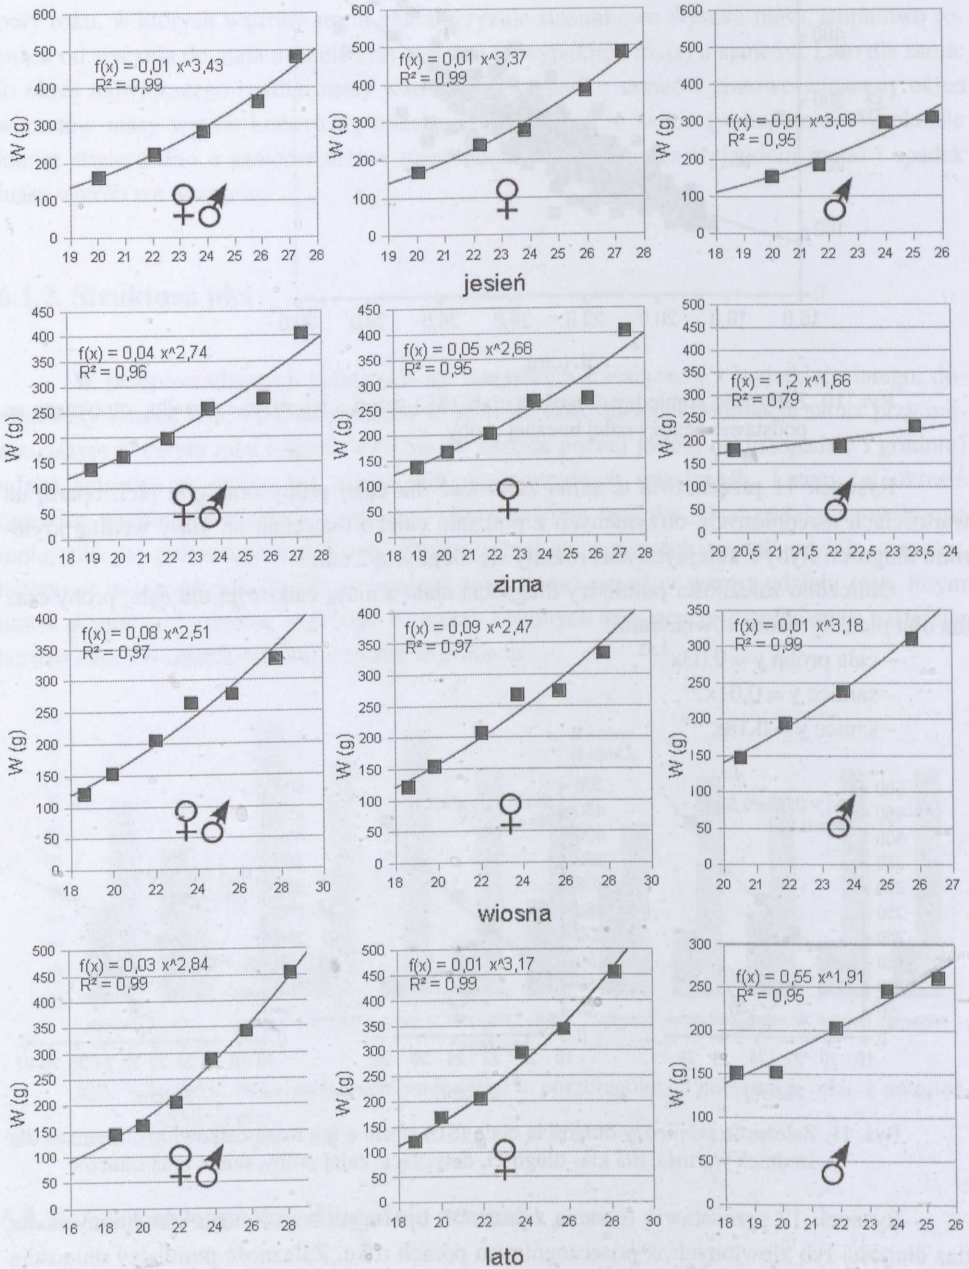 600
500
400
300
200
100
0
W (g)
f(x) = 0,01 x^3,43
R² = 0,99
19 20 21 22 23 24 25 26 27 28
600
500
400
300
200
100
0
W (g)
f(x) = 0,01 x^3,37
R² = 0,99
19 20 21 22 23 24 25 26 27 28
600
500
400
300
200
100
0
W (g)
f(x) = 0,01 x^3,08
R² = 0,95
18 19 20 21 22 23 24 25 26
jesień
450
400
350
300
250
200
150
100
50
0
W (g)
f(x) = 0,04 x^2,74
R² = 0,96
18 19 20 21 22 23 24 25 26 27 28
450
400
350
300
250
200
150
100
50
0
W (g)
f(x) = 0,05 x^2,68
R² = 0,95
18 19 20 21 22 23 24 25 26 27 28
500
450
400
350
300
250
200
150
100
50
0
W (g)
f(x) = 1,2 x^1,66
R² = 0,79
20 20,5 21 21,5 22 22,5 23 23,5 24
zima
400
350
300
250
200
150
100
50
0
W (g)
f(x) = 0,08 x^2,51
R² = 0,97
18 20 22 24 26 28 30
400
350
300
250
200
150
100
50
0
W (g)
f(x) = 0,09 x^2,47
R² = 0,97
18 20 22 24 26 28 30
350
300
250
200
150
100
50
0
W (g)
f(x) = 0,01 x^3,18
R² = 0,99
20 21 22 23 24 25 26 27
wiosna
500
450
400
350
300
250
200
150
100
50
0
W (g)
f(x) = 0,03 x^2,84
R² = 0,99
16 18 20 22 24 26 28
500
450
400
350
300
250
200
150
100
50
0
W (g)
f(x) = 0,01 x^3,17
R² = 0,99
16 18 20 22 24 26 28
300
250
200
150
100
50
0
W (g)
f(x) = 0,55 x^1,91
R² = 0,95
18 19 20 21 22 23 24 25 26
lato